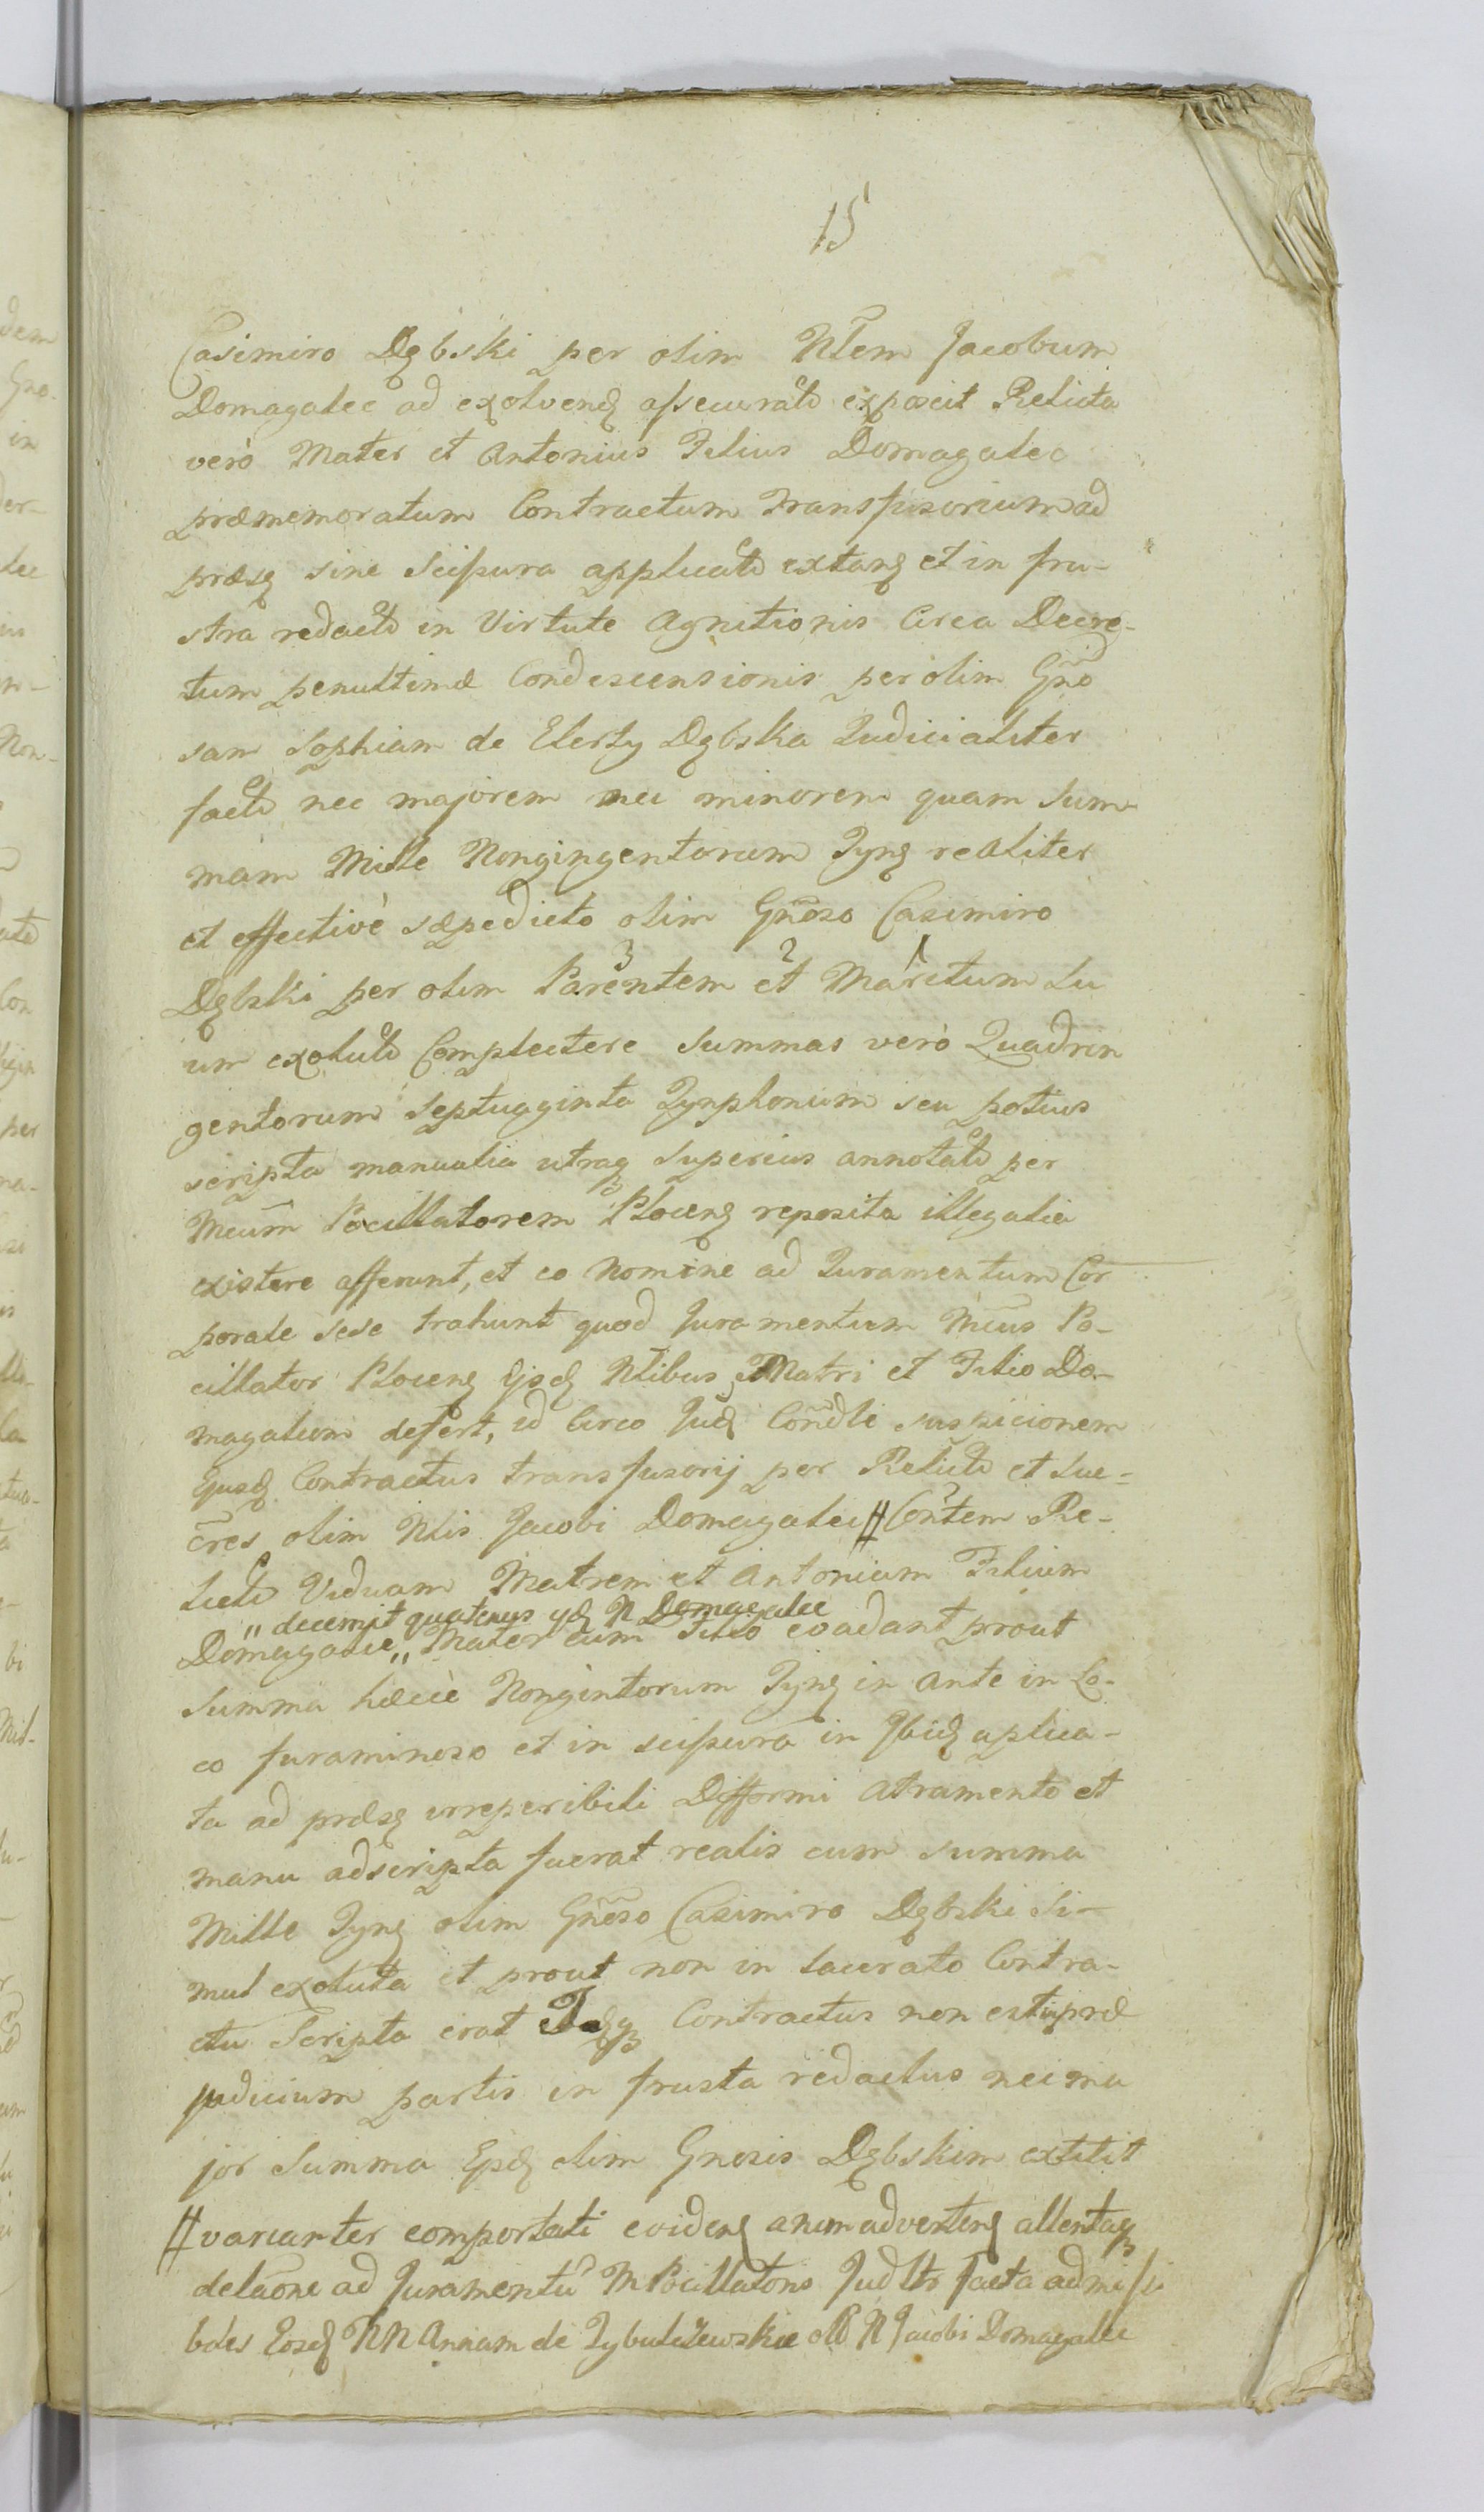 15
Casimiro Dębski per olim Nłem Jacobum
Domagalec ad exolvend assecurato exposcit Relicta
verò Mater et Antonius Filius Domagalec
præmemoratum Contractum Transfusorium ad
præsq sine Scissura applicato extanq et in fru-
stra redacto in Virtute Agnitionis Circa Decre-
tum penultimæ Condescensionis per olim Gño
sam Sophiam de Elerty Dębska Judicialiter
facto nec majorem nec minorem quam Sum-
mam Mille Nongingentorum Tynq realiter
et effectivè sæpedicto olim Gñoso Casimiro
Dębski per olim Parentem et Maritum Su
um exoluto Complectere Summas verò Quadrin
gentorum Septuaginta Tynphonum seu potius
scripta manualia utraq superius annotato per
Mcum Pocillatorem Plocenq reposita illegalia
existere asserunt, et eo Nomine ad Juramentum Cor
porale sese trahunt quod Juramentum Mcus Po-
cillator Plocenq Ijsd Nłibus Matri et Filio Do-
magalum defert, id Circo Jud Condli suspicionem
Ejusd Contractus transfusorij per Relicto et Suc-
cres olim Nlis Jacobi Domagalec # Contem Re-
licto Viduam Matrem et Antonium Filium
„ decernit quatenus yd N Domagalec
Domagalec „ Mater cum Filio evadant prout
Summa hæcce Nongintorum Tynq in ante in Lo-
co foraminoso et in scissura in Ibid aplica-
ta ad præsq irreperibili Difformi atramento et
manu adscripta fuerat realis cum summa
Mille Tynq olim Gñoso Casimiro Dębski Si-
mul exoluta et prout non in lacerato Contra-
ctu Scripta erat Contractus non est in præ
judicium partis in frusta redactus nec ma
jor Summa Epsd olim Gnosis Dębskim extitit
# varianter comportati evidenq animadvertenq attentaq
delaone ad Juramentũ M Pocillatoris Judltr facta admissi
bdes Eosd NN Annam de Zybuliżewskie N Jacobi Domagalec